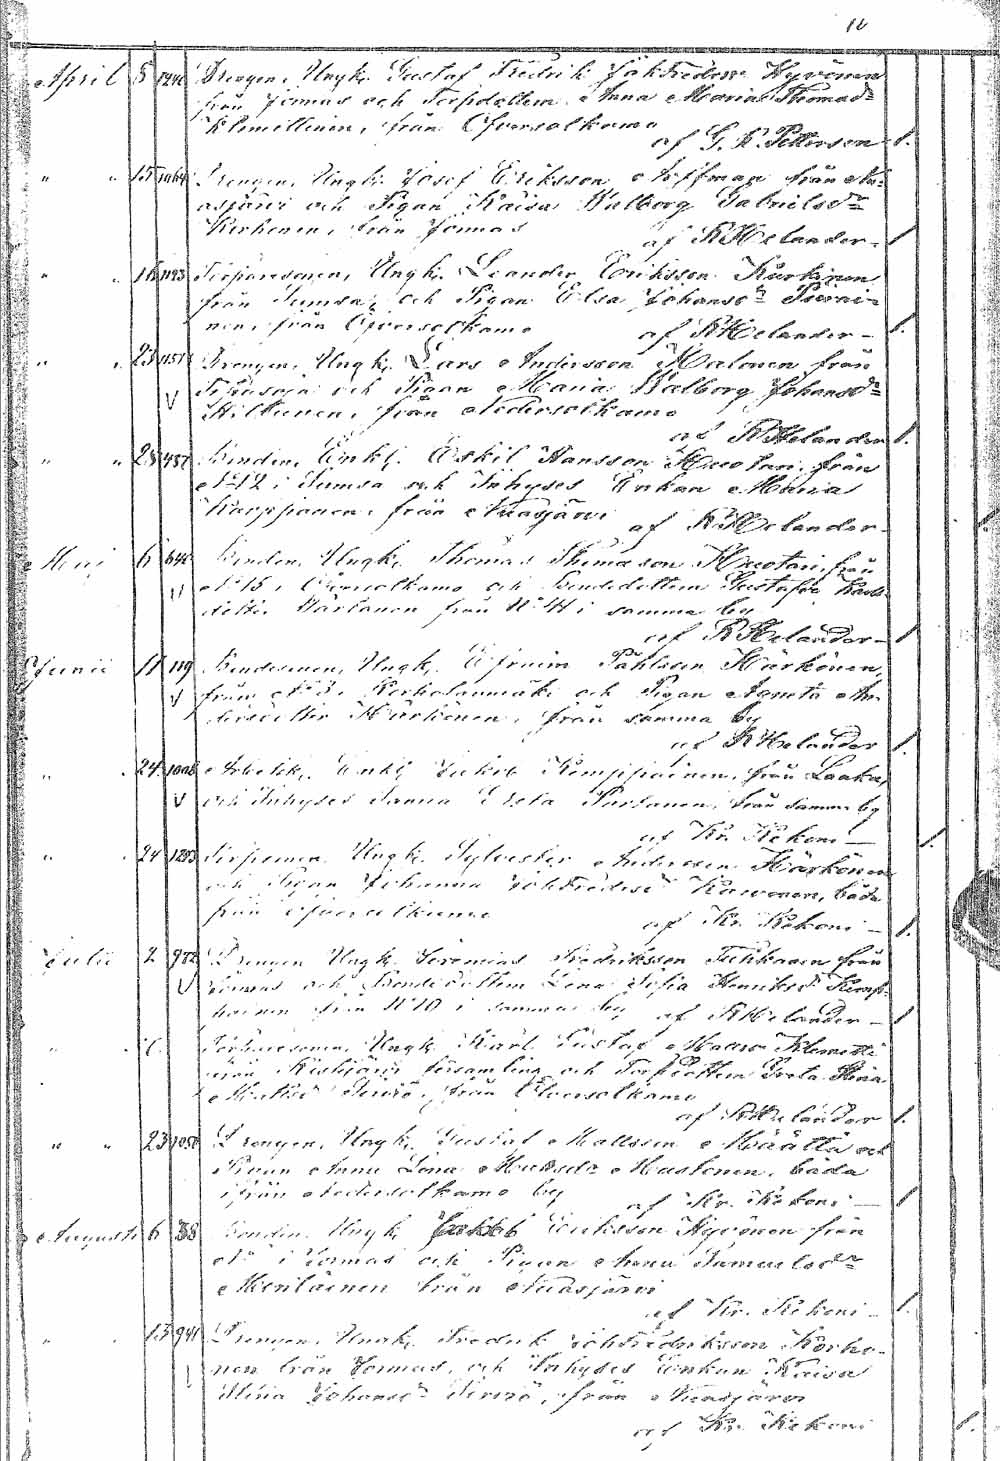 April 5 1240 Drengen, Ungk. Gustaf Fredrik Joh.Fredsson Hyvönen
från Jormus och Torpdottern Anna Maria Thomasdr
Klemettinen, från Öfversotkamo
af G. R. Petterson 1.
" " 15 Drengen, Ungk. Josef Eriksson Hoffman från Nu-
asjärvi och Pigan Kaisa Walborg Gabrielsdr
Kerhonen, från Jormus
af R Helander - 1
" " 18 1193 Torparesonen, Ungk. Leander Eriksson Kurkinen
från Sumsa, och Pigan Elsa Johansdr Purai-
nen, från Öfversotkamo
af R Helander - 1.
" " 23 Drengen, Ungk. Lars Andersson Malonen från
Tipasoja och Pigan Maria Walborg Johansdr
Hiltunen, från Nedersotkamo
af R Helander 1.
" " 28 457 Bonden, Enkl. Eskil Hansson Huotari från
N:o 12 i Sumsa och Inhyses Enkan Maria
Karppinen, från Nuasjärvi
af R Helander - 1.
Maij 6 640 Bonden, Ungk. Thomas Thomasson Huotari, från
N:o 15 i Öfversotkamo och Bondedottern Gustafva Karls-
dotter Wartanen från N:o 41 i samma by
af R Helander - 1
Junii 11 119 Bondesonen, Ungk. Efraim Påhlsson Härkönen,
från N:o 3 i Korholanmäki och Pigan Agneta An-
dersdotter Härkönen, från samma by
af R Helander 1
" " 24 1008 Arbetsk. Enkl. Jakob Kemppainen, från Laaka,
och Inhyses Sanna Greta Partanen, från samma by
af Kr. Kekoni - 1.
" " 24 1253 Torparen Ungk. Sylvester Andersson Härkönen
och Pigan Johanna Joh.Fredsdr Kaivonen, båda
från Öfversotkamo
af Kr. Kekoni - 1.
Julii 2 982 Drengen Ungk. Jeremias Fredriksson Tuhkanen från
Jormus och Bondedottern Lena Sofia Henriksdr Kemp-
painen från N:o 10 i samma by
af R Helander - 1
" " Torparesonen, Ungk. Karl Gustaf Klemetti
från Ristijärvi församling och Torpdottern Greta Stina
Mattsdr Tervo, från Öfversotkamo
af R Helander 1.
" " 23 1050 Drengen, Ungk. Gustaf Mattsson Määttä och
Pigan Anna Lena Mattsdr Mustonen, båda
från Nedersotkamo by
af Kr. Kekoni - 1
Augusti 6 38 Bonden, Ungk. Jakob Eriksson Hyvönen från
N:o i Jormus och Pigan Anna Samuelsdr
Meriläinen från Nuasjärvi
af Kr. Kekoni - 1.
" " 13 941 Drengen, Ungk. Fredrik Joh.Fredriksson Korho-
nen från Jormus, och Inhyses Enkan Kaisa
Stina Johansdr Tervo, från Nuasjärvi
af Kr. Kekoni 1.